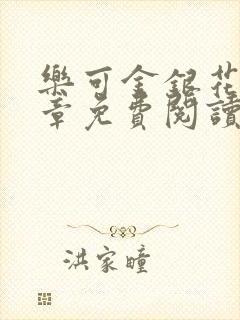 樂可金銀花
章免費閱讀
洪家瞳